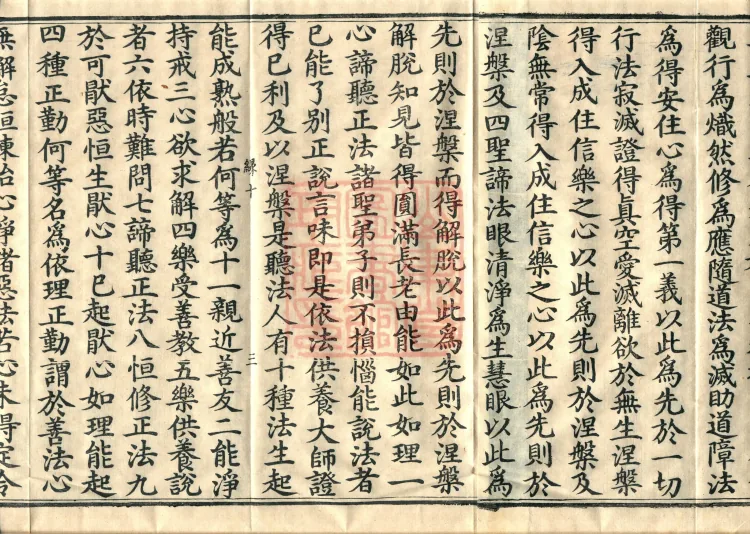 觀行爲熾然修爲應隨道法爲滅助道障法
爲得安住心爲得第一義以此爲先於一切
行法寂滅證得眞空愛滅離欲於無生涅槃
得入成住信樂之心以此爲先則於涅槃及
陰無常得入成住信樂之心以此爲先則於
涅槃及四聖諦法眼清淨爲生慧眼以此爲
先則於涅槃而得解脫以此爲先則於涅槃
解脫知見皆得圓滿長老由能如此如理一
心諦聽正法諸聖弟子則不損惱能說法者
已能了别正說言味即是依法供養大師證
得已利及以涅槃是聽法人有十種法生起
緣十
三
能成熟般若何等爲十一親近善友二能淨
持戒三心欲求解四樂受善教五樂供養說
者六依時難問七諦聽正法八恒修正法九
於可猒惡恒生猒心十已起猒心如理能起
四種正勤何等名爲依理正勤謂於善法心
無懈怠恒練治心淨者惡法若心未得定令